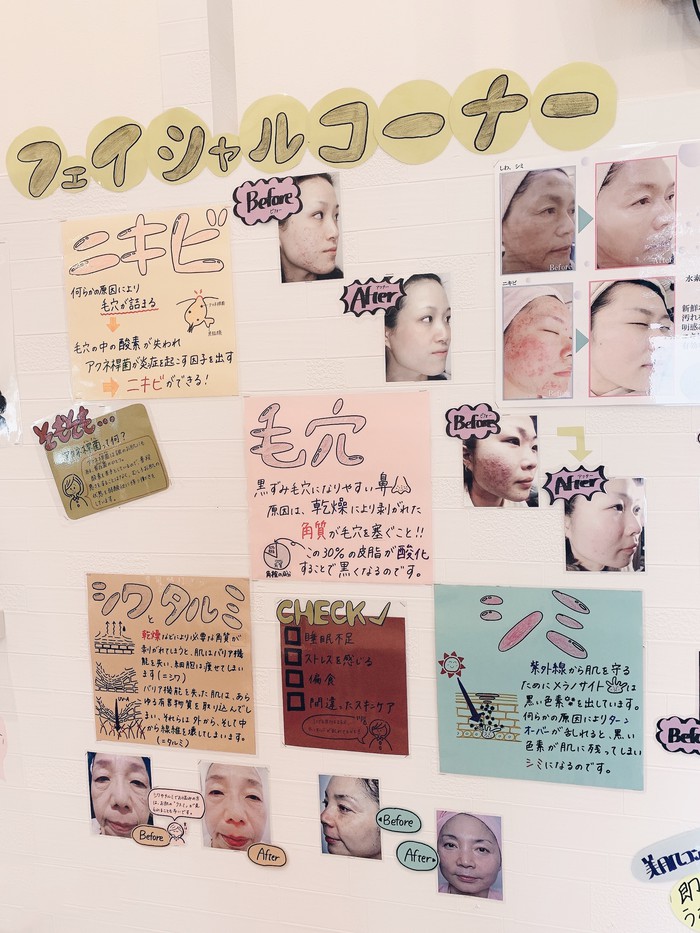 フェイシャルコーナー
Before
ビフォー
After
アフター
しわ、シミ
Before
After
ニキビ
Before
After
ニキビ
何らかの原因により
毛穴が詰まる
毛穴の中の酸素が失われ
アクネ桿菌が炎症を起こす因子を出す
ニキビができる!
そもそも・・・
アクネ桿菌って何?
毛穴
黒ずみ毛穴になりやすい鼻
原因は、乾燥により剥がれた
角質が毛穴を塞ぐこと!!
この30%の皮脂が酸化
することで黒くなるのです。
Before
ビフォー
After
アフター
シワとタルミ
乾燥などにより必要な角質が
剥がれてしまうと、肌はバリア機
能を失い、細胞は痩せてしまい
ます(=シワ)
バリア機能を失った肌は、あら
ゆる有害物質を取り込んでし
まい、それらは外から、そして中
から繊維を壊してしまいます。
(=タルミ)
UV-A
CHECK✓
睡眠不足
ストレスを感じる
偏食
間違ったスキンケア
シミ
紫外線から肌を守る
ためにメラノサイトは
黒い色素を出しています。
何らかの原因によりターン
オーバーが乱れると、黒い
色素が肌に残ってしまい
シミになるのです。
Before
After
Before
After
Befo
美肌コ
即
う